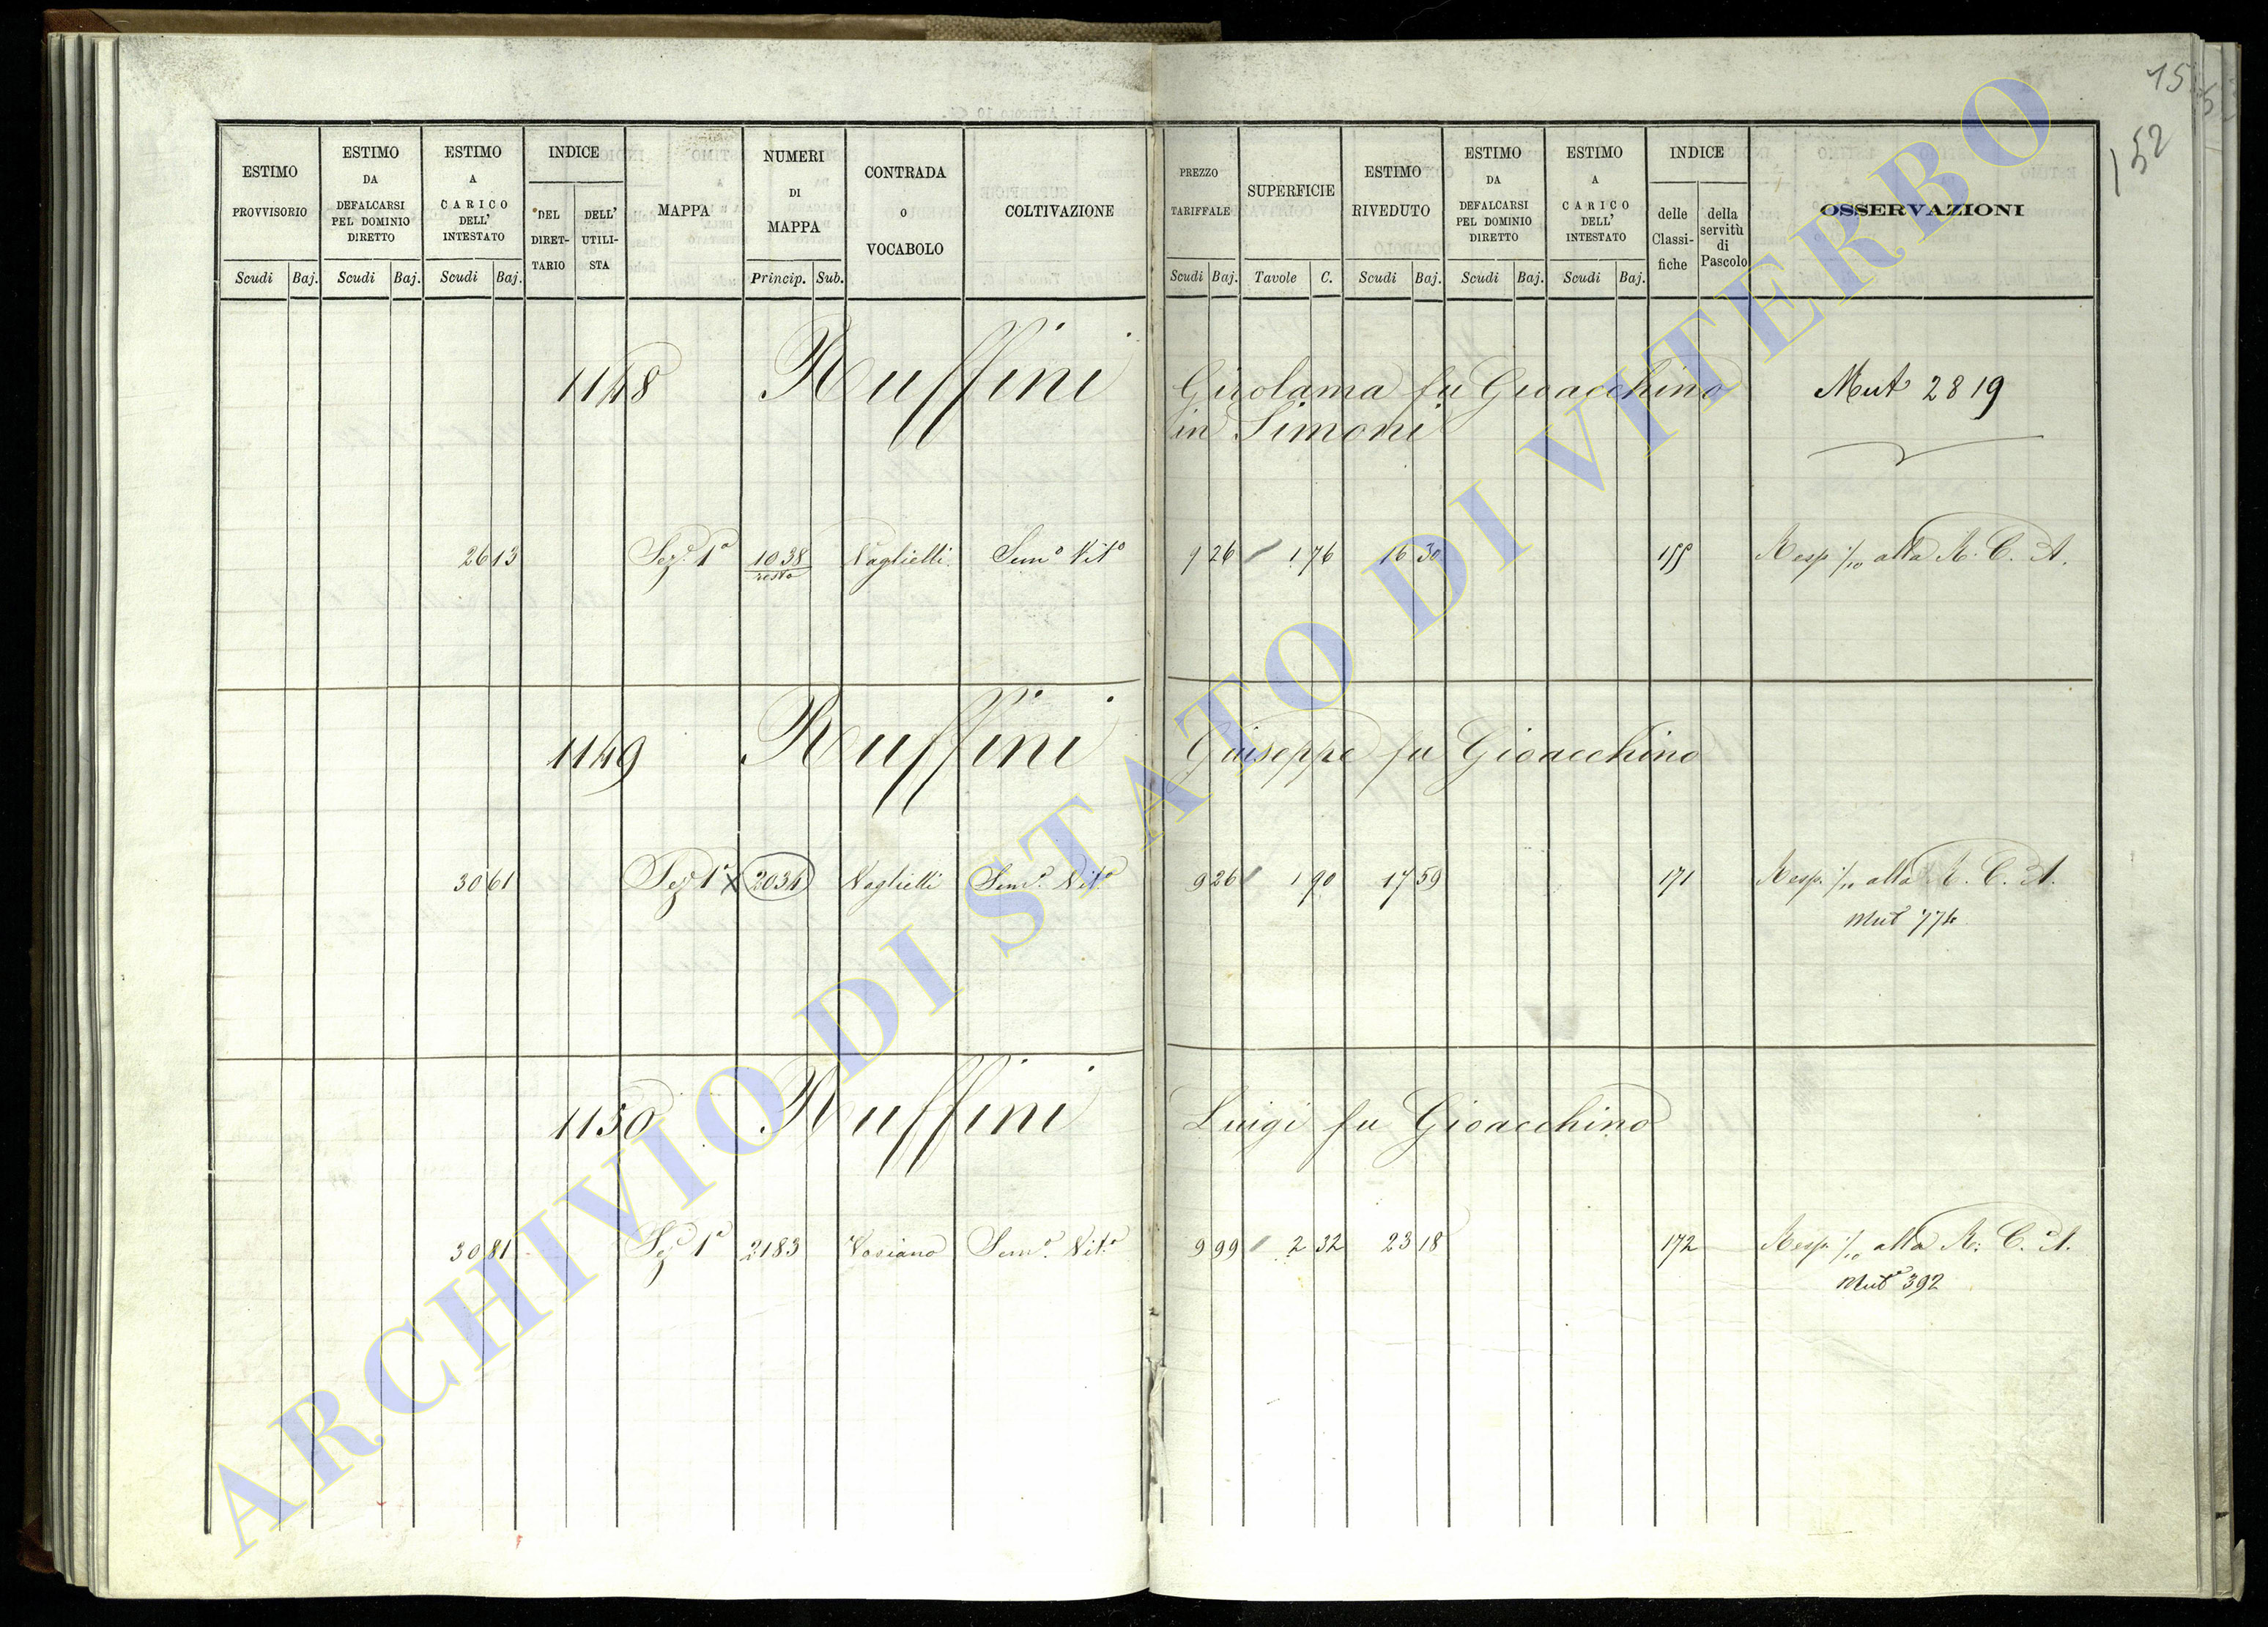 15
152
ESTIMO PROVVISORIO
ESTIMO DA DEFALCARSI PEL DOMINIO DIRETTO
ESTIMO A CARICO DELL' INTESTATO
INDICE
DEL DIRET- TARIO
DELL' UTILI- STA
MAPPA
NUMERI DI MAPPA
CONTRADA O VOCABOLO
COLTIVAZIONE
PREZZO TARIFFALE
SUPERFICIE
ESTIMO RIVEDUTO
ESTIMO DA DEFALCARSI PEL DOMINIO DIRETTO
ESTIMO A CARICO DELL' INTESTATO
INDICE
delle Classi- fiche
della servitù di Pascolo
OSSERVAZIONI
Scudi Baj. Scudi Baj. Scudi Baj. Princip. Sub. Scudi Baj. Tavole C. Scudi Baj. Scudi Baj. Scudi Baj.
1148 Ruffini Girolama fu Gioacchino Mut 2819
in Simoni
26 13 Sez. 1a 1038 Naglielli Semo Vito 9 26 1 76 16 30 Resp. 1/10 alla R. C. A.
resto
1149 Ruffini Giuseppe fu Gioacchino
30 61 Sez 1a x 2034 Naglielli Semo. Vito 9 26 1 90 17 59 171 Resp. alla R. C. A.
Mut 774
1150 Ruffini Luigi fu Gioacchino
30 81 Sez 1a 2183 Semo. Vito 9 99 2 32 23 18 172 Resp. 1/10 alla R. C. A.
Mut 392
ARCHIVIO DI STATO DI VITERBO